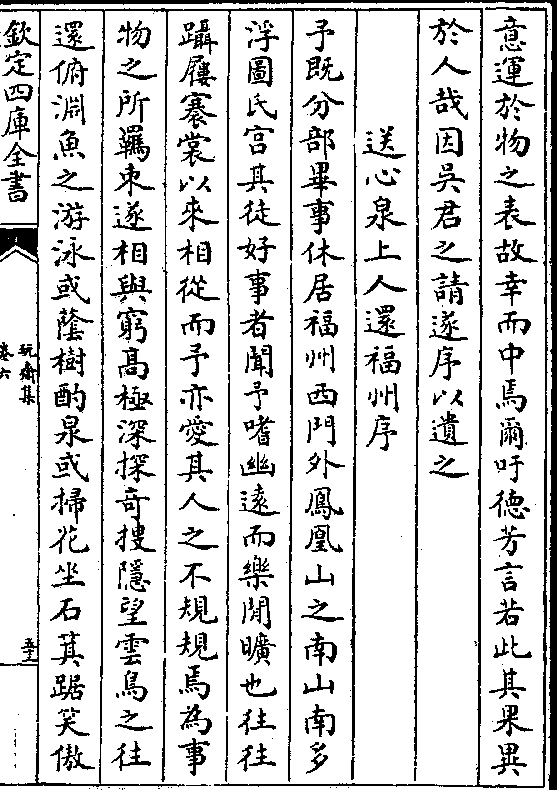 意運於物之表故幸而中焉爾吁徳芳言若此其果異
於人哉因吳君之請遂序以遺之
送心泉上人還福州序
予既分部畢事休居福州西門外鳳凰山之南山南多
浮圖氏宫其徒好事者聞予嗜幽遠而樂閒曠也往往
躡屨褰裳以來相從而予亦愛其人之不規規焉為事
物之所羈束遂相與窮髙極深探竒搜隱望雲鳥之往
還俯淵魚之游泳或蔭樹酌泉或掃花坐石箕踞笑傲
欽定四庫全書
玩齋集
卷六
五十